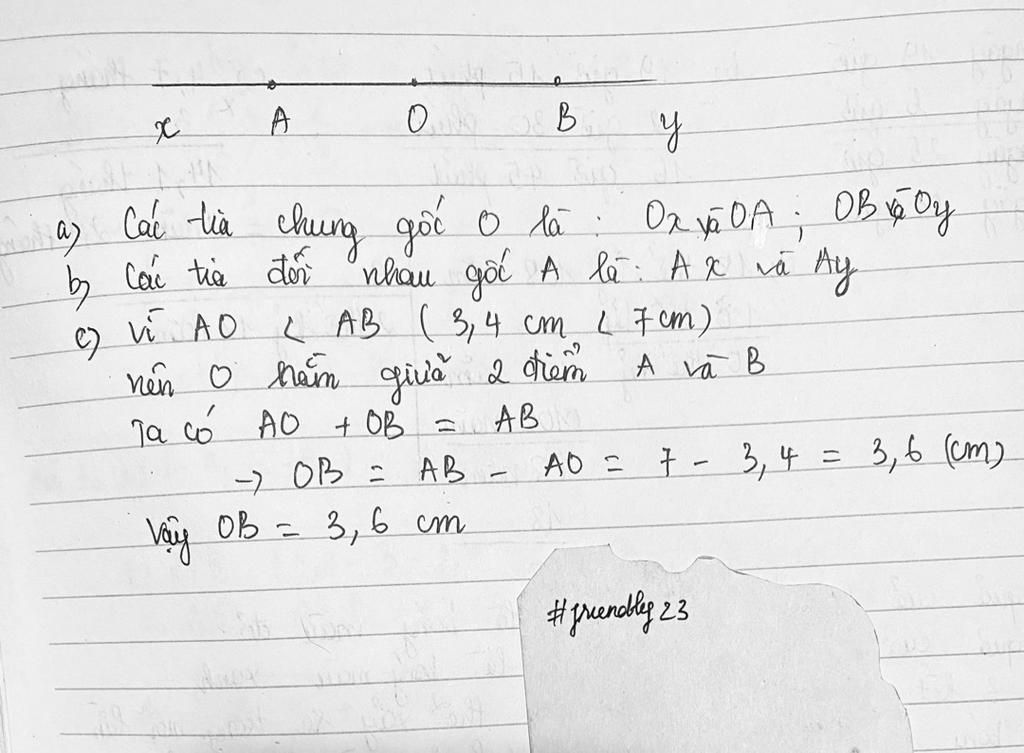 x A O B y
a) Các tia chung gốc O là : Ox và OA ; OB và Oy
b) Các tia đối nhau gốc A là : Ax và Ay
c) Vì AO < AB ( 3,4 cm < 7cm )
nên O nằm giữa 2 điểm A và B
Ta có AO + OB = AB
→ OB = AB - AO = 7 - 3,4 = 3,6 (cm)
Vậy OB = 3,6 cm